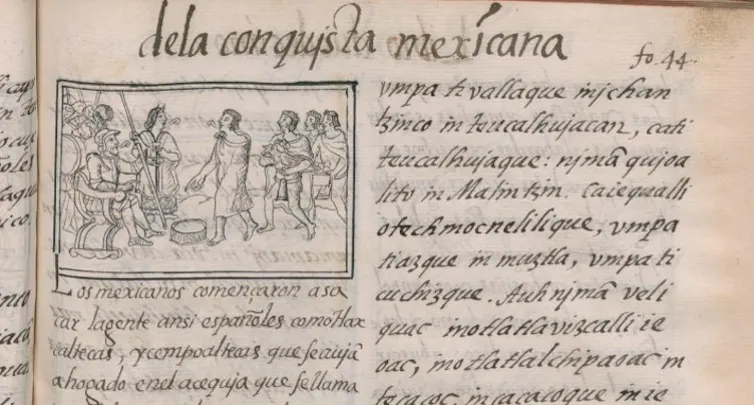 dela conquista mexicana
fo. 44.
Los mexicanos començaron a sa
car lagente ansi españoles como tlax
caltecas, y cempoaltecas que se auiā
ahogado enel acequja que se llama
vmpa ti vallaque injchan
tzinco in teucalhujacan, cati
teucalhujaque: njmā qujoa
lito in Malintzin. Ca ie qualli
otechmocnelilique, vmpa
tiazque in muztla, vmpa ti
cuchizque. Auh njmā veli
quac in otlatlavizcalli ie
oac, in otlatlalchipaoac in
tecacoc, in cacacoque in ie